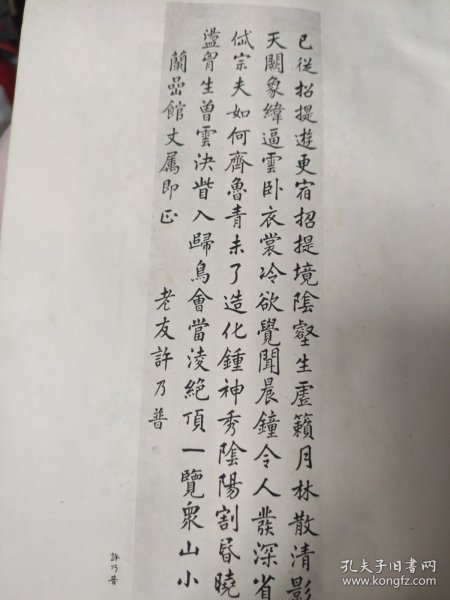 已從招提遊更宿招提境陰壑生虛籟月林散清影
天闕象緯逼雲卧衣裳冷欲覺聞晨鐘令人發深省
岱宗夫如何齊魯青未了造化鍾神秀陰陽割昏曉
盪胷生曾雲決眥入歸鳥會當淩絕頂一覽衆山小
蘭嵒館丈屬即正 老友許乃普
許乃普
孔夫子旧书网